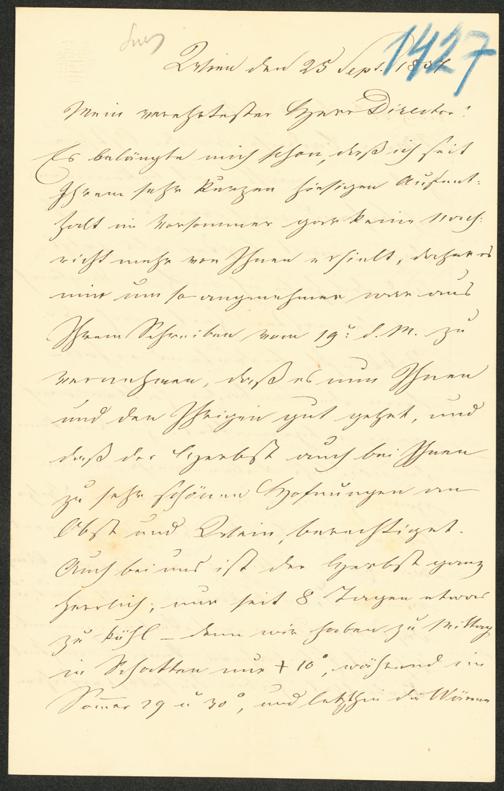 1427
Wien den 25 Sept. 188
Mein verehrtester Herr Director!
Es belängte mich schon, daß ich seit
Ihrem sehr kurzen hiesigen Aufent-
halt im Vorsommer gar keine Nach-
richt mehr von Ihnen erhielt, daher es
mir um so angenehmer war aus
Ihrem Schreiben vom 19t d. M. zu
vernehmen, daß es nun Ihnen
und den Ihrigen gut gehet, und
daß der Herbst auch bei Ihnen
zu sehr schönen Hofnungen an
Obst und Wein, berechtiget.
Auch bei uns ist der Herbst ganz
herrlich, nur seit 8 Tagen etwas
zu kühl – denn wir haben zu Mittag
im Schatten nur + 10°, während im
Sommer 29 u 30°, und letzthin die Wärme